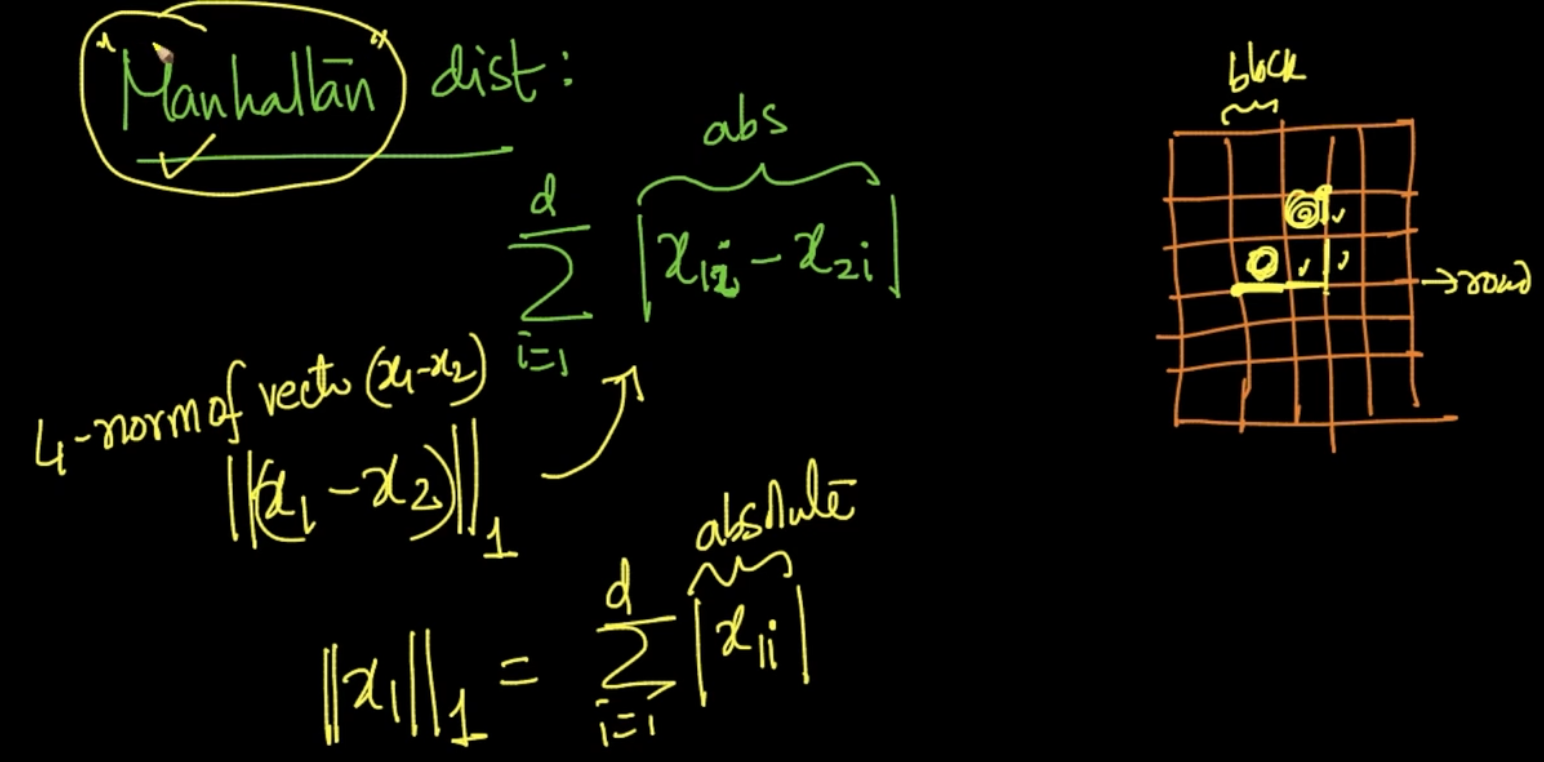 "Manhattan" dist:
abs
d
∑ |x₁ᵢ - x₂ᵢ|
i=1
L₁-norm of vector (x₁-x₂)
||(x₁ - x₂)||₁
absolute
d
||x₁||₁ = ∑ |x₁ᵢ|
i=1
block
→road